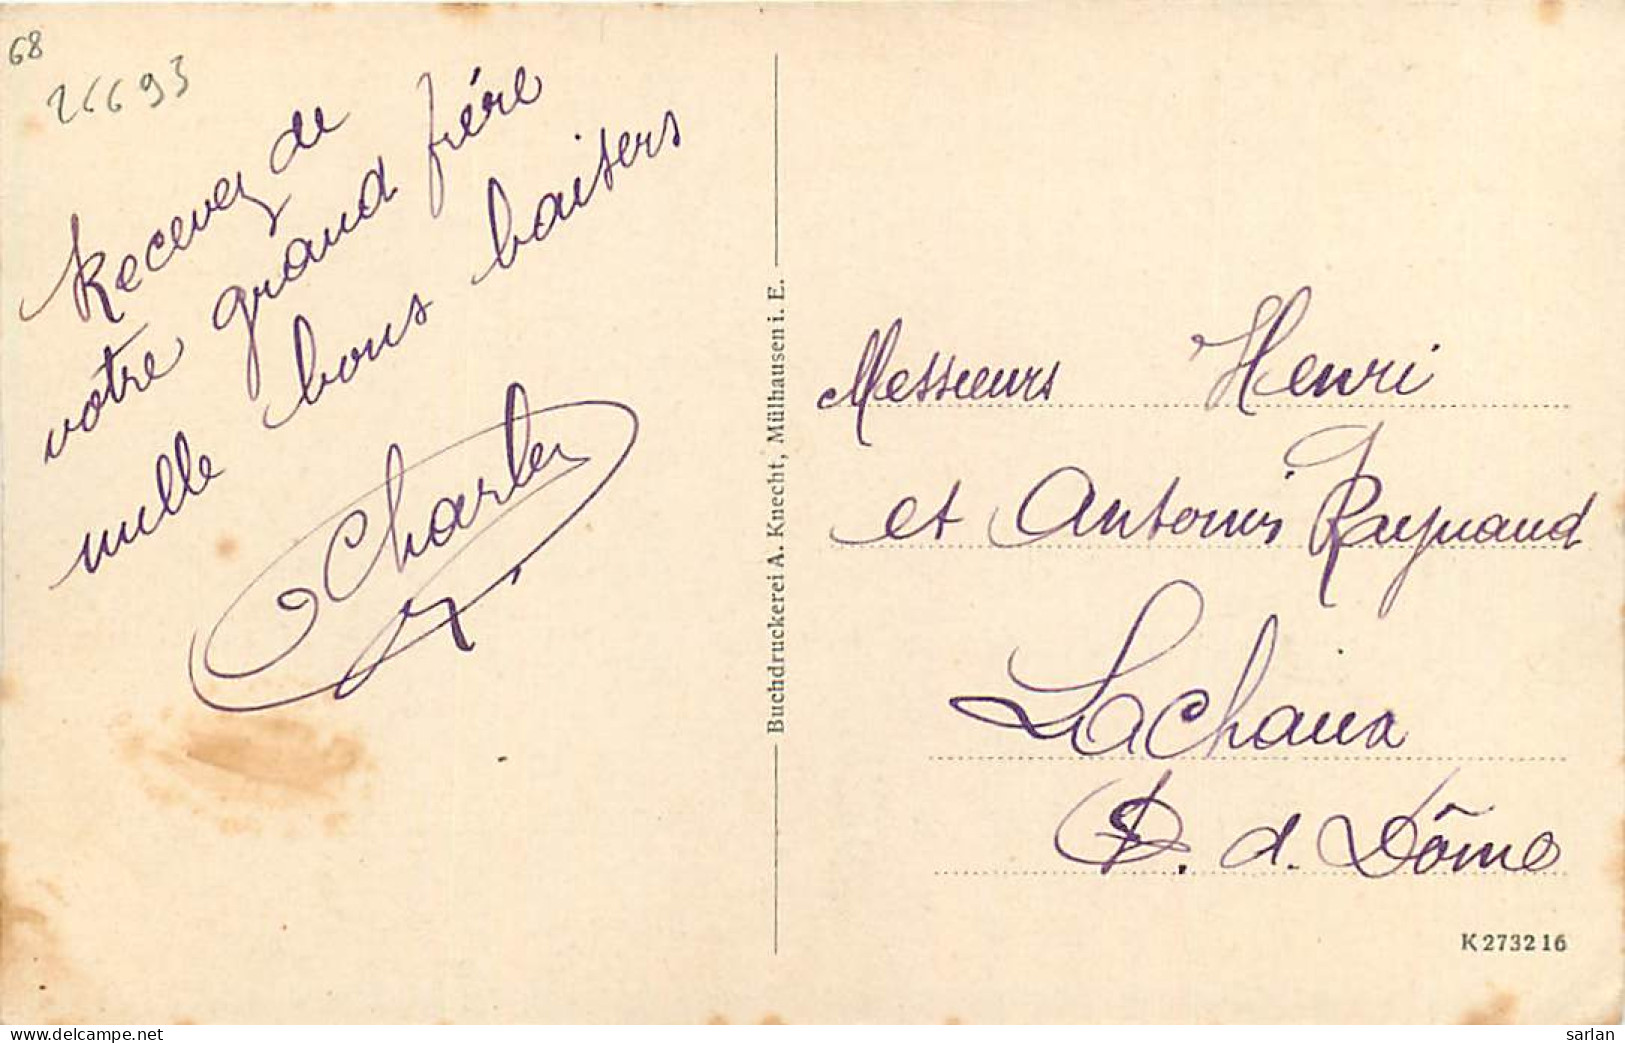 68
26693
Recevez de
votre grand frère
mille bons baisers
Charles
Buchdruckerei A. Knecht, Mülhausen i. E.
Messieurs Henri
et Antonin Raynaud
Lachaux
P. d. Dôme
K 273216
www.delcampe.net
sarlan